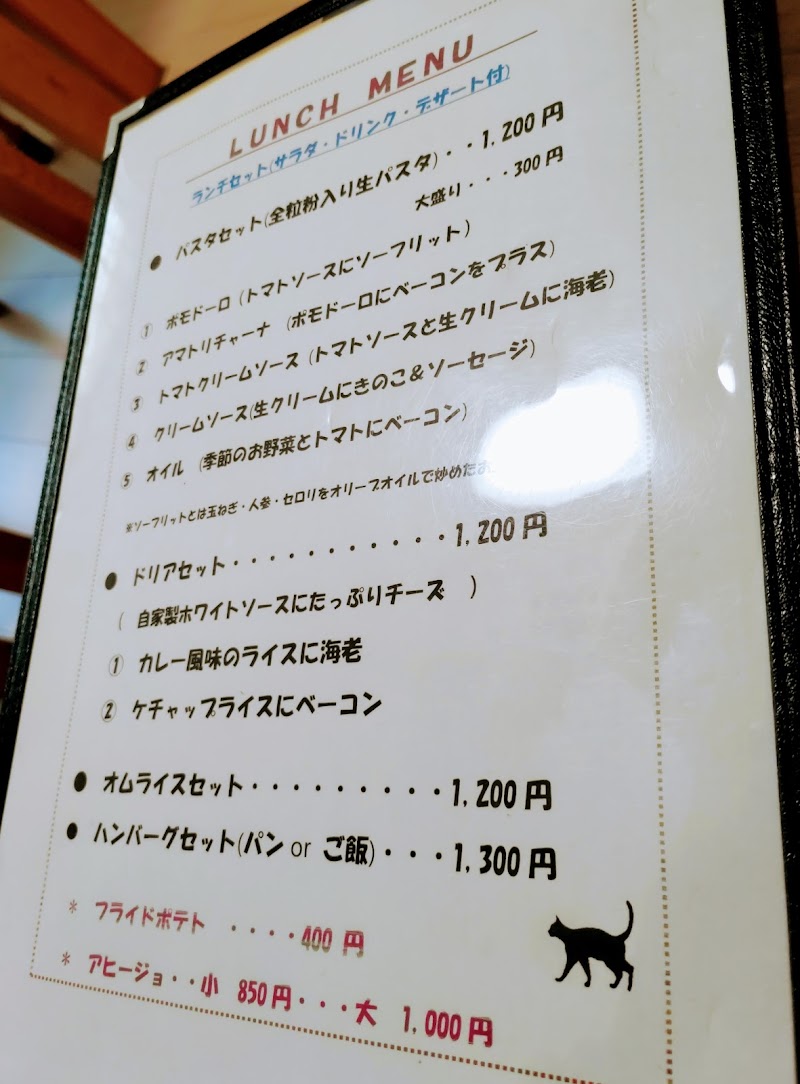 LUNCH MENU
ランチセット(サラダ・ドリンク・デザート付)
● パスタセット(全粒粉入り生パスタ)・・1,200円
大盛り・・・300円
① ポモドーロ (トマトソースにソーフリット)
② アマトリチャーナ (ポモドーロにベーコンをプラス)
③ トマトクリームソース (トマトソースと生クリームに海老)
④ クリームソース(生クリームにきのこ&ソーセージ)
⑤ オイル (季節のお野菜とトマトにベーコン)
※ソーフリットとは玉ねぎ・人参・セロリをオリーブオイルで炒めた
● ドリアセット・・・・・・・・・・・1,200円
( 自家製ホワイトソースにたっぷりチーズ )
① カレー風味のライスに海老
② ケチャップライスにベーコン
● オムライスセット・・・・・・・・・1,200円
● ハンバーグセット(パン or ご飯)・・・1,300円
* フライドポテト ・・・・400円
* アヒージョ・・小 850円・・・大 1,000円